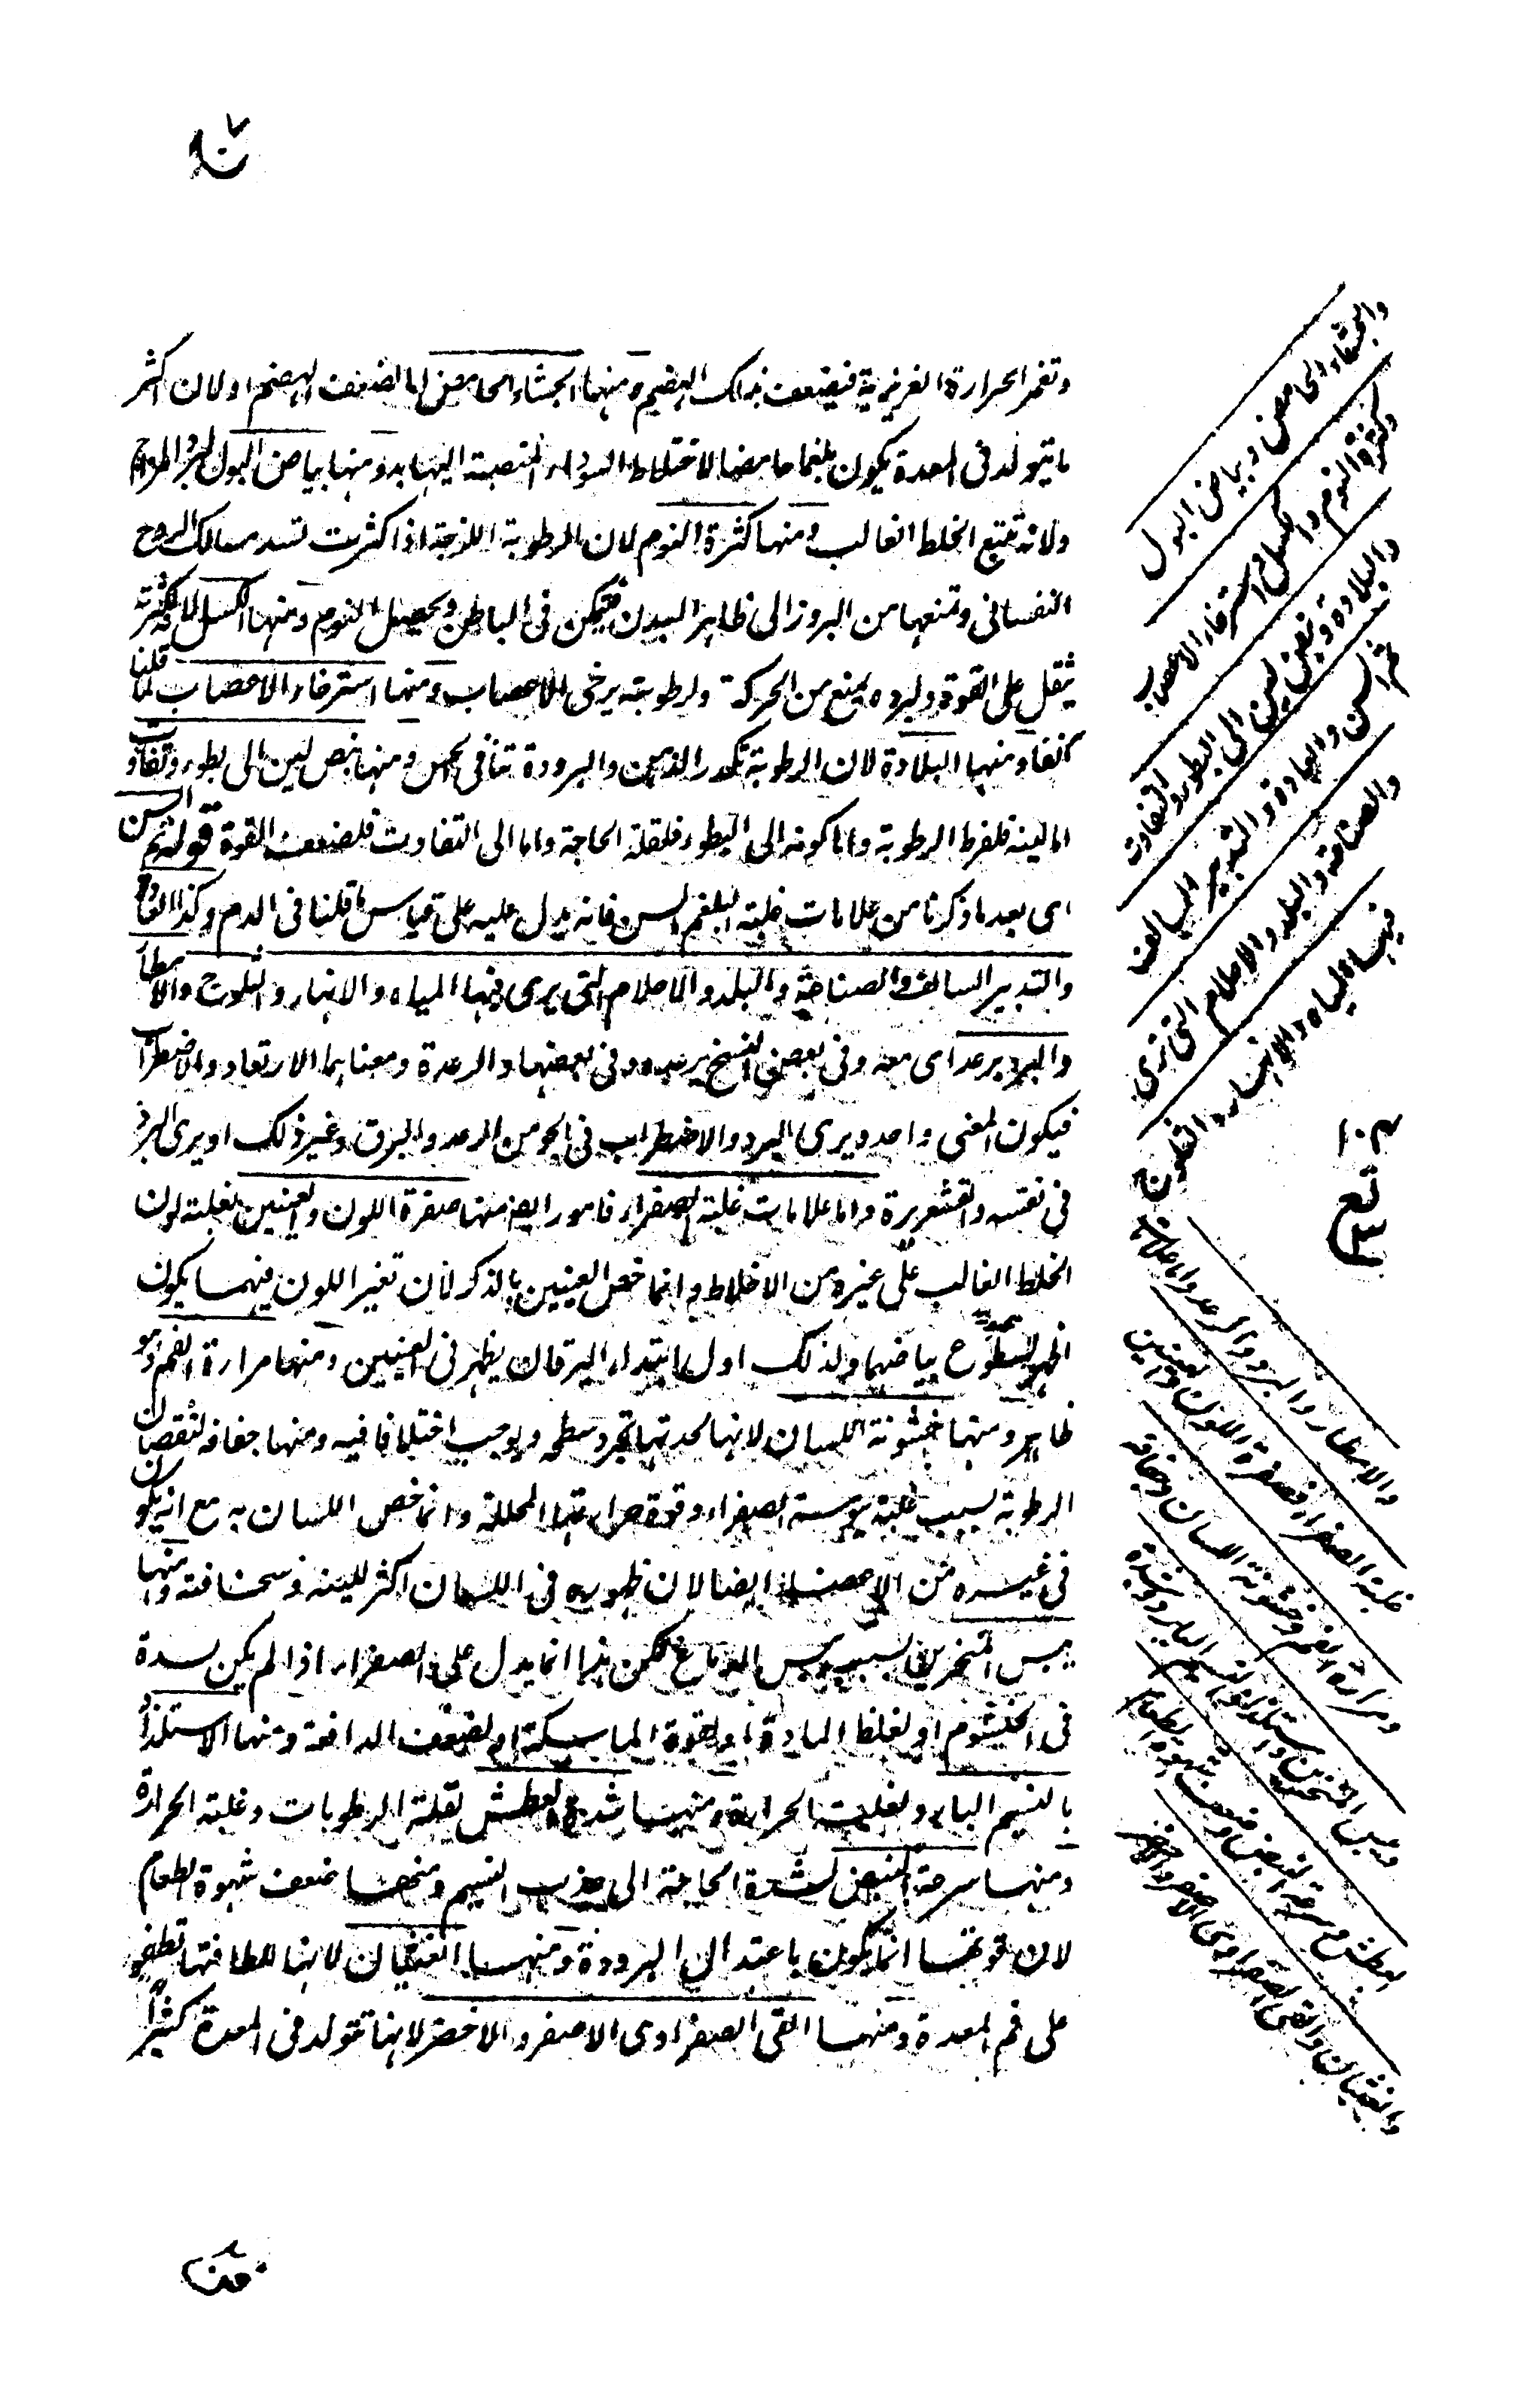 وتغمر الحرارة الغريزية فيضعف بذلك الهضم ومنها الجشاء الحامض اما لضعف الهضم او لان اكثر
ما يتولد في المعدة يكون بلغما حامضا لاختلاط السوداء المنصبة اليها به ومنها بياض البول لبرد المزاج
ولانه يتبع الخلط الغالب ومنها كثرة النوم لان الرطوبة اللزجة اذا كثرت تسد مسالك الروح
النفساني وتمنعها من البروز الى ظاهر البدن فيمكن في الباطن ويحصل النوم ومنها الكسل لانه لكثرته
يثقل على القوة ولبرده يمنع من الحركة ولرطوبته يرخى الاعصاب ومنها استرخاء الاعصاب لما قلنا
آنفا ومنها البلادة لان الرطوبة تكدر الذهن والبرودة تنافى الحس ومنها نبض لين الى بطوء وتفاوت
اما لينه فلفرط الرطوبة واما كونه الى البطوء فلقلة الحاجة واما الى التفاوت فلضعف القوة قوله ثم السن
اى بعد ما ذكرنا من علامات غلبة البلغم السن فانه يدل عليه على قياس ما قلنا في الدم وكذا العادة
والتدبير السالف والصناعة والبلد والاحلام التى يرى فيها المياه والانهار والثلوج والامطار
والبرد برعد اى معه وفى بعض النسخ برعده وفى بعضها والرعدة ومعناهما الارتعاد والاضطراب
فيكون المعنى واحد ويرى البرد والاضطراب في الجو من الرعد والبرق وغير ذلك او يرى البرد
في نفسه والقشعريرة واما علامات غلبة الصفراء فامور ايضا منها صفرة اللون والعينين لغلبة لون
الخلط الغالب على غيره من الاخلاط وانما خص العينين بالذكر لان تغير اللون فيهما يكون
اظهر لسطوع بياضهما ولذلك اول ابتداء اليرقان يظهر في العينين ومنها مرارة الفم وهو
ظاهر ومنها خشونة اللسان لانها لحدتها تجرد سطحه ويوجب اختلافا فيه ومنها جفافه لنقصان
الرطوبة بسبب غلبة يبوسة الصفراء وقوة حرارتها المحللة وانما خص اللسان به مع انه يكون
في غيره من الاعضاء ايضا لان ظهوره في اللسان اكثر للينه وسخافته ومنها
يبس المنخرين بسبب يبس الدماغ لكن هذا انما يدل على الصفراء اذا لم يكن لسدة
في الخيشوم او لغلظ المادة او لقوة الماسكة او لضعف الدافعة ومنها الاستلذاذ
بالنسيم البارد لغلبة الحرارة ومنها شدة العطش لقلة الرطوبات وغلبة الحرارة
ومنها سرعة النبض لشدة الحاجة الى جذب النسيم ومنها ضعف شهوة الطعام
لان قوتها انما يكون باعتدال البرودة ومنها الغثيان لانها للطافتها تطفو
على فم المعدة ومنها القى الصفراوى الاصفر والاخضر لانها تتولد في المعدة كثيراً
والجشاء الحامض وبياض البول
وكثرة النوم والكسل واسترخاء الاعصاب
والبلادة ونبض لين الى البطوء والتفاوت
ثم السن والعادة والتدبير السالف
والصناعة والبلد والاحلام التى ترى
فيها المياه والانهار والثلوج
والامطار والبرد والرعد واما علامات
غلبة الصفراء فصفرة اللون والعينين
ومرارة الفم وخشونة اللسان وجفافه
ويبس المنخرين واستلذاذ النسيم البارد وشدة
العطش وسرعة النبض وضعف شهوة الطعام
والغثيان والقى الصفراوى الاصفر والاخضر